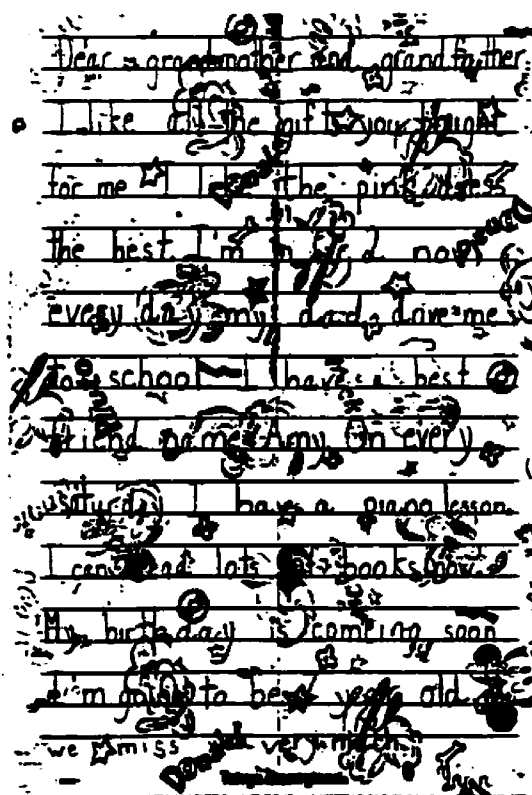 Dear grandmother and grandfather
I like all the gifts you bought
for me I like the pink dress
the best. I'm in now
every day my dad drive me
to school I have a best
friend name Amy On every
saturday I have a piano lesson
I can read lots of books now.
My birthday is coming soon
I'm going to be years old
we miss very much
Donald